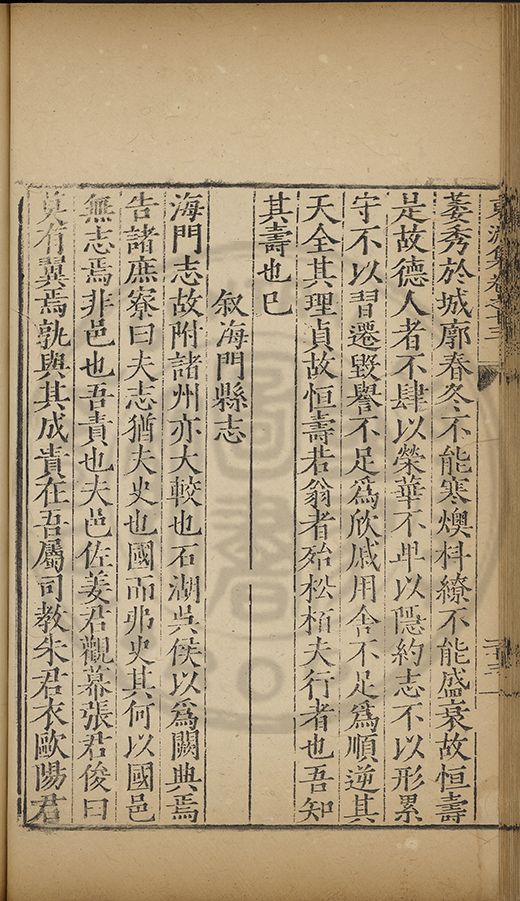 萎秀於城廓春冬不能寒燠枓繚不能盛衰故恒壽
是故德人者不肆以榮華不卑以隱約志不以形累
守不以習遷毀譽不足爲欣戚用舍不足爲順逆其
天全其理貞故恒壽若翁者殆松栢夫行者也吾知
其壽也已
叙海門縣志
海門志故附諸州亦大較也石湖吳侯以爲闕典焉
告諸庶寮曰夫志猶夫史也國而弗史其何以國邑
無志焉非邑也吾責也夫邑佐姜君觀幕張君俊曰
莫有翼焉孰與其成責在吾屬司教朱君衣歐陽君